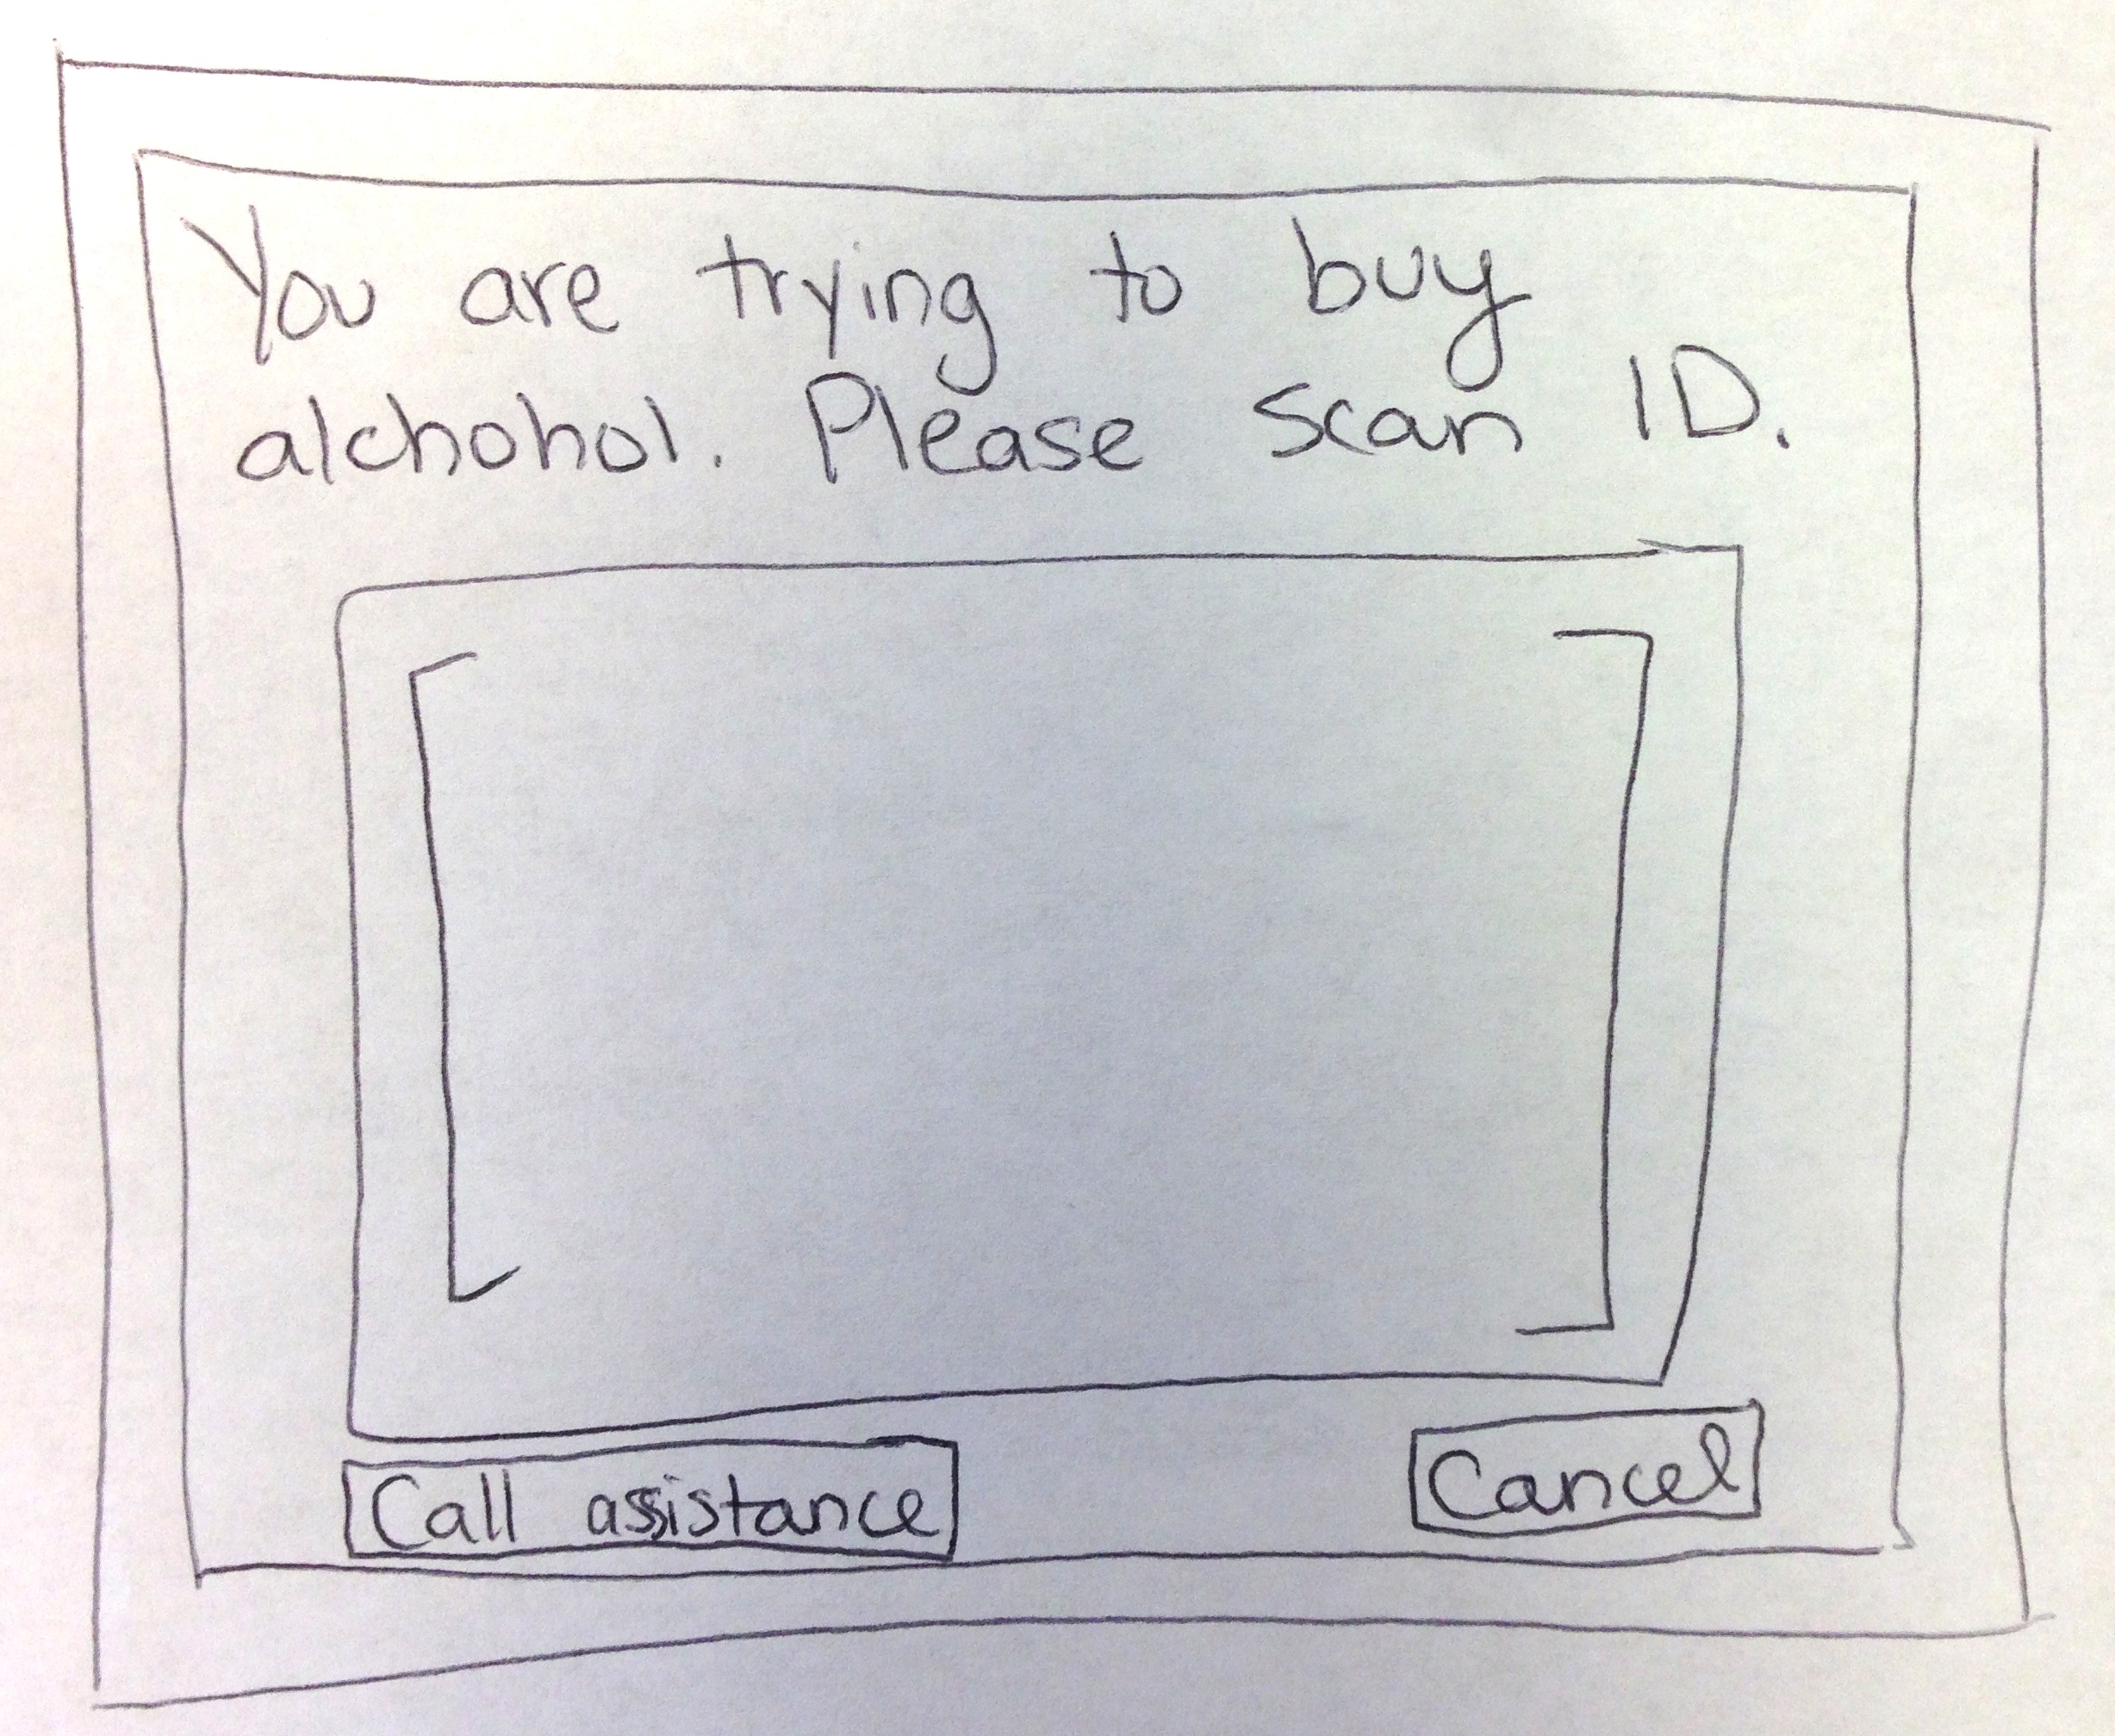 You are trying to buy
alchohol. Please scan ID.
Call assistance
Cancel